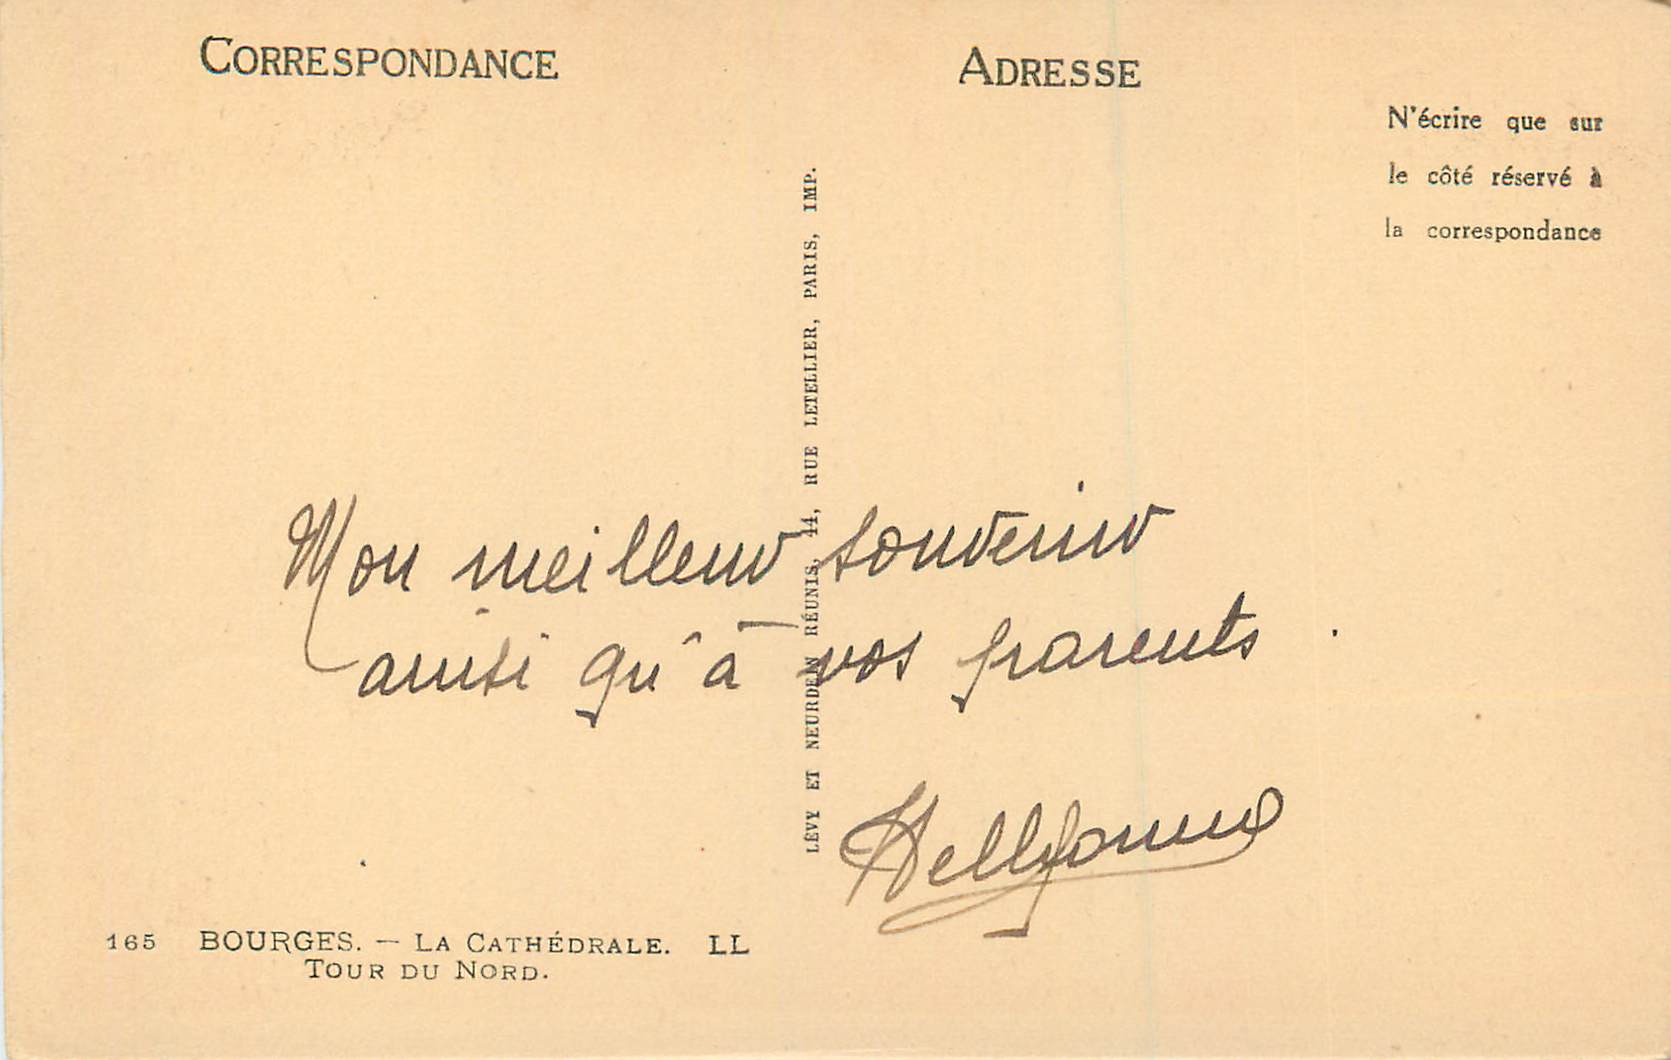 CORRESPONDANCE
ADRESSE
N'écrire que sur
le côté réservé à
la correspondance
LÉVY ET NEURDEIN RÉUNIS, 44, RUE LETELLIER, PARIS, IMP.
Mon meilleur souvenir
ainsi qu'à vos parents.
165 BOURGES. — LA CATHÉDRALE. LL
TOUR DU NORD.